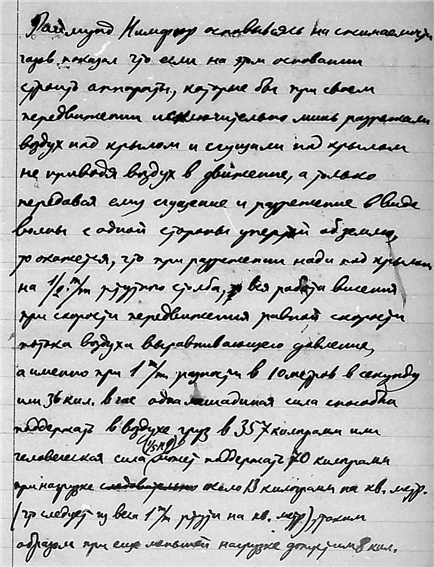 Раймунд Нимфюр основываясь на сжимаемости
газов показал что если на этом основании
строить аппараты, которые бы при своем
передвижении исключительно лишь разрежали
воздух над крылом и сгущали под крылом
не приводя воздух в движение, а только
передавая ему сгущение и разрежение в виде
волны с одной стороны упертой об землю,
то окажется, что при разрежении над и под крылом
на 1/2 m/m ртутного столба, вся работа висения
при скорости передвижения равной скорости
потока воздуха выравнивающего давление,
а именно при 1 m/m разности в 10 метров в секунду
или 36 кил. в час одна лошадиная сила способна
поддержать в воздухе груз в 357 килограмм или
человеческая сила (1/5 HP) может поддержать 70 килограмм
при нагрузке следовательно около 13 килограмм на кв. метр.
(что следует из веса 1 m/m ртути на кв. метр), таким
образом при еще меньшей нагрузке допустим 8 кил.